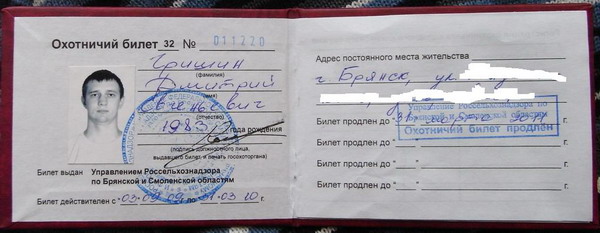 Охотничий билет 32 № 011220
Гришин
(фамилия)
Дмитрий
(имя)
Евгеньевич
(отчество)
1983 года рождения
(подпись должностного лица,
выдавшего билет и печать госохоторгана)
Билет выдан Управлением Россельхознадзора
по Брянской и Смоленской областям
Билет действителен с 03.09.09 по 31.03.10 г.
Адрес постоянного места жительства
г. Брянск, ул.
Управление Россельхознадзора по
Брянской и Смоленской областям
Охотничий билет продлен
Билет продлен до "31" 2011 г.
Билет продлен до "__" г.
Билет продлен до "__" г.
Билет продлен до "__" г.
Билет продлен до "__" г.